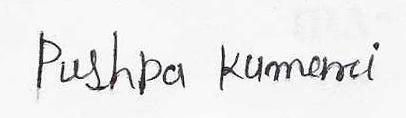 Pushpa Kumari